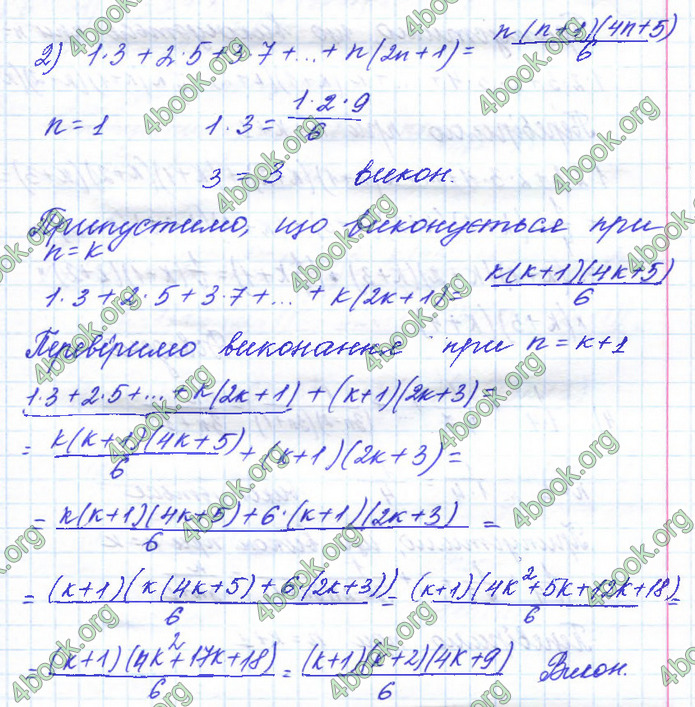 2) 1·3 + 2·5 + 3·7 + ... + n(2n+1) = n(n+1)(4n+5)/6
n = 1   1·3 = 1·2·9/6
3 = 3   викон.
Припустимо, що виконується при
n = k
1·3 + 2·5 + 3·7 + ... + k(2k+1) = k(k+1)(4k+5)/6
Перевіримо виконання при n = k+1
1·3 + 2·5 + ... + k(2k+1) + (k+1)(2k+3) =
= k(k+1)(4k+5)/6 + (k+1)(2k+3) =
= k(k+1)(4k+5) + 6·(k+1)(2k+3)/6 =
= (k+1)(k(4k+5) + 6(2k+3))/6 = (k+1)(4k²+5k+12k+18)/6 =
= (k+1)(4k²+17k+18)/6 = (k+1)(k+2)(4k+9)/6 Викон.
4book.org